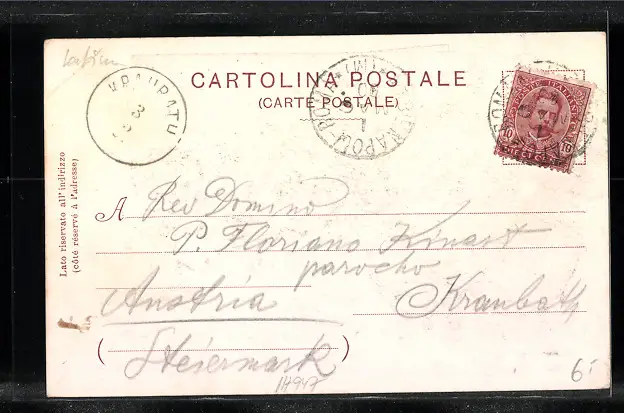 CARTOLINA POSTALE
(CARTE POSTALE)
KRAUBATH
NAPOLI-ROMA
10
10
Lato riservato all'indirizzo
(côté réservé à l'adresse)
A Rev Domino
P. Floriano Kinast
parocho
Austria Kraubath
(Steiermark)
14947
6